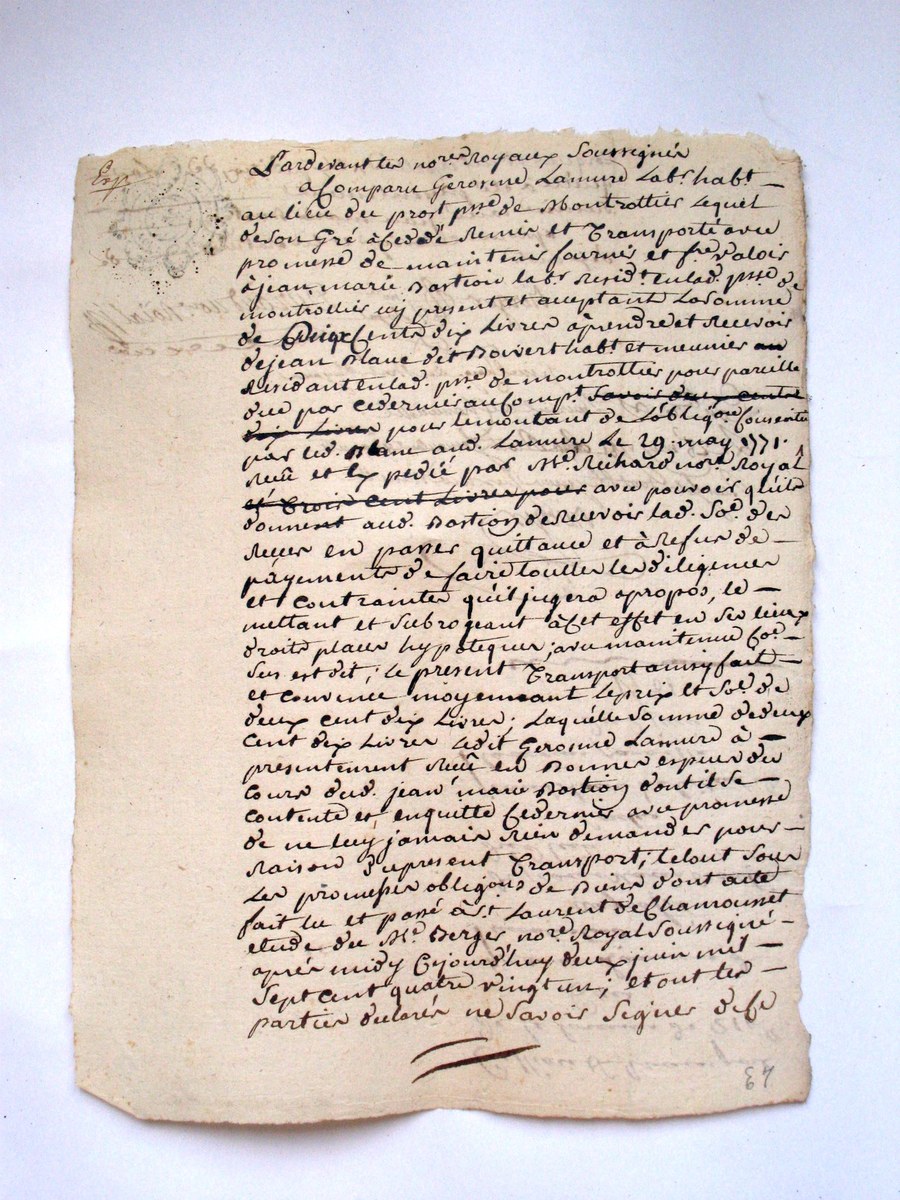 Exp
Pardevant les nores Royaux Soussignés
a Comparu Gerosme Lamure Labr habt
au lieu du prost psse de Montrottier Lequel
de Son Gré a Cedé Remis et Transporté avec
promesse de maintenir fournir et fre valoir
à jean marie Bastion labr Residt enlad. psse de
montrottier icy present et acceptant La Somme
de Cents dix Livres à prendre et Recevoir
de jean Blanc dit Boivert habt et meunier
Residant enlad. psse de montrottier pour pareille
due par Cedernier au Compt Savoir deux cents
dix Livres pour le montant de L'obligaon Consentie
par led. Blanc aud. Lamure Le 29 may 1771.
Reçû et Expedié par Me Richard nore Royal
et Trois Cent Livres pour avec pouvoir qu'il
donnent aud. Bastion de Recevoir lad. Soe des
Recev en passer quittance et à Refus de
payements de faire touttes les diligences
et Contraintes qu'il jugera apropos, le
mettant et Subrogeant à Cet effet en Ses lieux
droits places hypoteques, avec maintenue Coe
Sus est dit; le present Transport ainsy fait
et convenu moyennant le prix et Soe de
deux cent dix Livres; Laquelle Somme de deux
Cent dix Livres Ledit Gerosme Lamure à
presentement Reçû en Bonnes especes du
Cours dud. jean marie Bastion dont il Se
Contente et en quitte Cedernier avec promesse
de ne luy jamais Rien demander pour
Raison Dupresent Transport; le tout Sous
Les promesses obligons de Biens dont acte
fait lu et passé à St Laurent de Chamousset
etude du Me Berger nore Royal Soussigné
après midy Cejourd'huy deux juin mil
Sept cent quatre vingt un; et ont les
parties declarés ne Savoir Signer de Ce